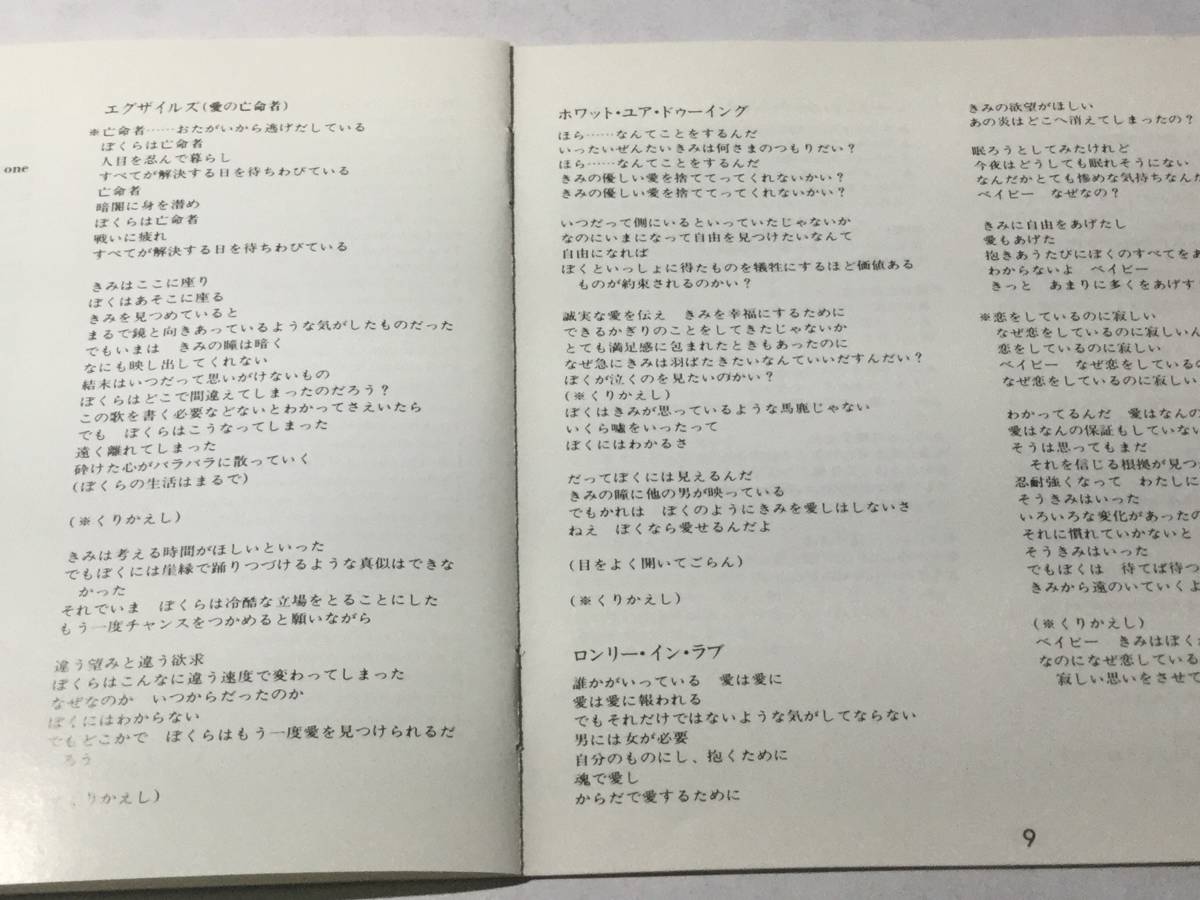 one
エグザイルズ(愛の亡命者)
※亡命者……おたがいから逃げだしている
ぼくらは亡命者
人目を忍んで暮らし
すべてが解決する日を待ちわびている
亡命者
暗闇に身を潜め
ぼくらは亡命者
戦いに疲れ
すべてが解決する日を待ちわびている
きみはここに座り
ぼくはあそこに座る
きみを見つめていると
まるで鏡と向きあっているような気がしたものだった
でもいまは　きみの瞳は暗く
なにも映し出してくれない
結末はいつだって思いがけないもの
ぼくらはどこで間違えてしまったのだろう？
この歌を書く必要などないとわかってさえいたら
でも　ぼくらはこうなってしまった
遠く離れてしまった
砕けた心がバラバラに散っていく
(ぼくらの生活はまるで)
(※くりかえし)
きみは考える時間がほしいといった
でもぼくには崖縁で踊りつづけるような真似はできな
かった
それでいま　ぼくらは冷酷な立場をとることにした
もう一度チャンスをつかめると願いながら
違う望みと違う欲求
ぼくらはこんなに違う速度で変わってしまった
なぜなのか　いつからだったのか
ぼくにはわからない
でもどこかで　ぼくらはもう一度愛を見つけられるだ
ろう
くりかえし)
ホワット・ユア・ドゥーイング
ほら……なんてことをするんだ
いったいぜんたいきみは何さまのつもりだい？
ほら……なんてことをするんだ
きみの優しい愛を捨ててってくれないかい？
きみの優しい愛を捨ててってくれないかい？
いつだって側にいるといっていたじゃないか
なのにいまになって自由を見つけたいなんて
自由になれば
ぼくといっしょに得たものを犠牲にするほど価値ある
ものが約束されるのかい？
誠実な愛を伝え　きみを幸福にするために
できるかぎりのことをしてきたじゃないか
とても満足感に包まれたときもあったのに
なぜ急にきみは羽ばたきたいなんていいだすんだい？
ぼくが泣くのを見たいのかい？
(※くりかえし)
ぼくはきみが思っているような馬鹿じゃない
いくら嘘をいったって
ぼくにはわかるさ
だってぼくには見えるんだ
きみの瞳に他の男が映っている
でもかれは　ぼくのようにきみを愛しはしないさ
ねえ　ぼくなら愛せるんだよ
(目をよく開いてごらん)
(※くりかえし)
ロンリー・イン・ラブ
誰かがいっている　愛は愛に
愛は愛に報われる
でもそれだけではないような気がしてならない
男には女が必要
自分のものにし、抱くために
魂で愛し
からだで愛するために
きみの欲望がほしい
あの炎はどこへ消えてしまったの？
眠ろうとしてみたけれど
今夜はどうしても眠れそうにない
なんだかとても惨めな気持ちなんだ
ベイビー　なぜなの？
きみに自由をあげたし
愛もあげた
抱きあうたびにぼくのすべてをあ
わからないよ　ベイビー
きっと　あまりに多くをあげす
※恋をしているのに寂しい
なぜ恋をしているのに寂しいん
恋をしているのに寂しい
ベイビー　なぜ恋をしているの
なぜ恋をしているのに寂しい
わかってるんだ　愛はなんの
愛はなんの保証もしていない
そうは思ってもまだ
それを信じる根拠が見つか
忍耐強くなって　わたしに
そうきみはいった
いろいろな変化があったの
それに慣れていかないと
そうきみはいった
でもぼくは　待てば待つ
きみから遠のいていくよ
(※くりかえし)
ベイビー　きみはぼくか
なのになぜ恋している
寂しい思いをさせて
9